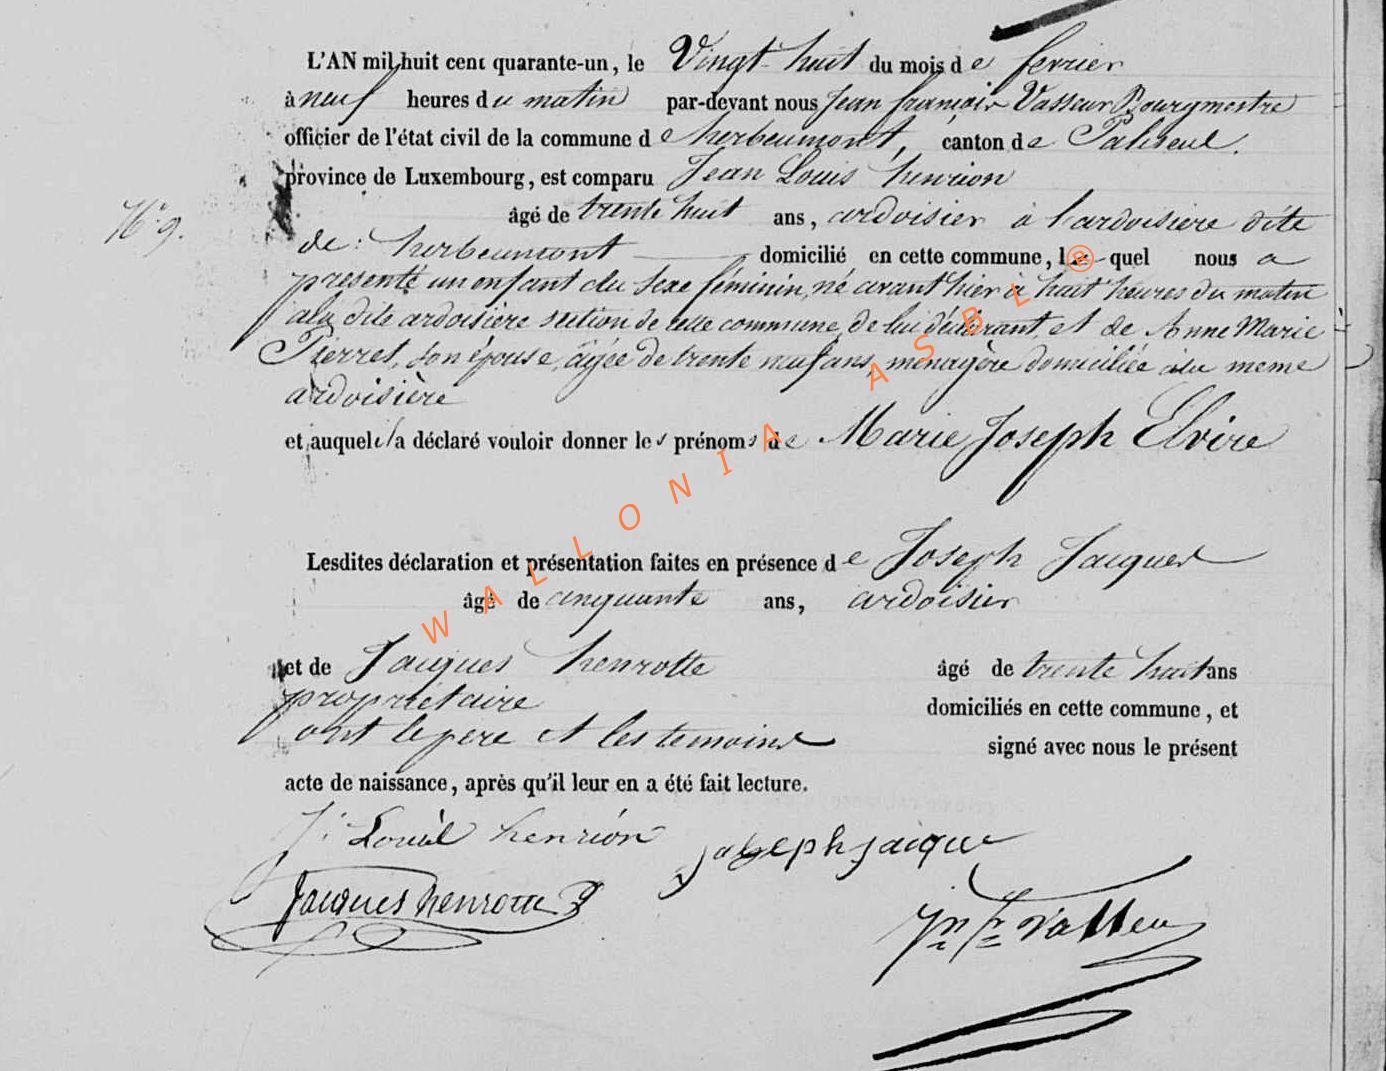 L'AN mil huit cent quarante-un, le Vingt huit du mois de fevrier
à neuf heures du matin par-devant nous Jean françois Vasseur Bourgmestre
officier de l'état civil de la commune de herbeumont, canton de Paliseul.
province de Luxembourg, est comparu Jean Louis henrion
N° 9.
âgé de trente huit ans, ardoisier à l'ardoisière dite
de : herbeumont domicilié en cette commune, le quel nous a
presenté un enfant du sexe féminin, né avant hier à huit heures du matin
a la dite ardoisière section de cette commune, de lui déclarant, et de Anne Marie
Pierret, son épouse, âgée de trente neuf ans, menagère domiciliée à la meme
ardoisière
et auquel il a déclaré vouloir donner les prénoms de Marie Joseph Elvire
Lesdites déclaration et présentation faites en présence de Joseph Jacques
âgé de cinquante ans, ardoisier
et de Jacques henrotte âgé de trente huit ans
proprietaire domiciliés en cette commune, et
ont le pere et les temoins signé avec nous le présent
acte de naissance, après qu'il leur en a été fait lecture.
J: Louis henrion Joseph Jacque
Jacques henrotte
Jn Fr Vasseur
WALLONIA ASBL ®